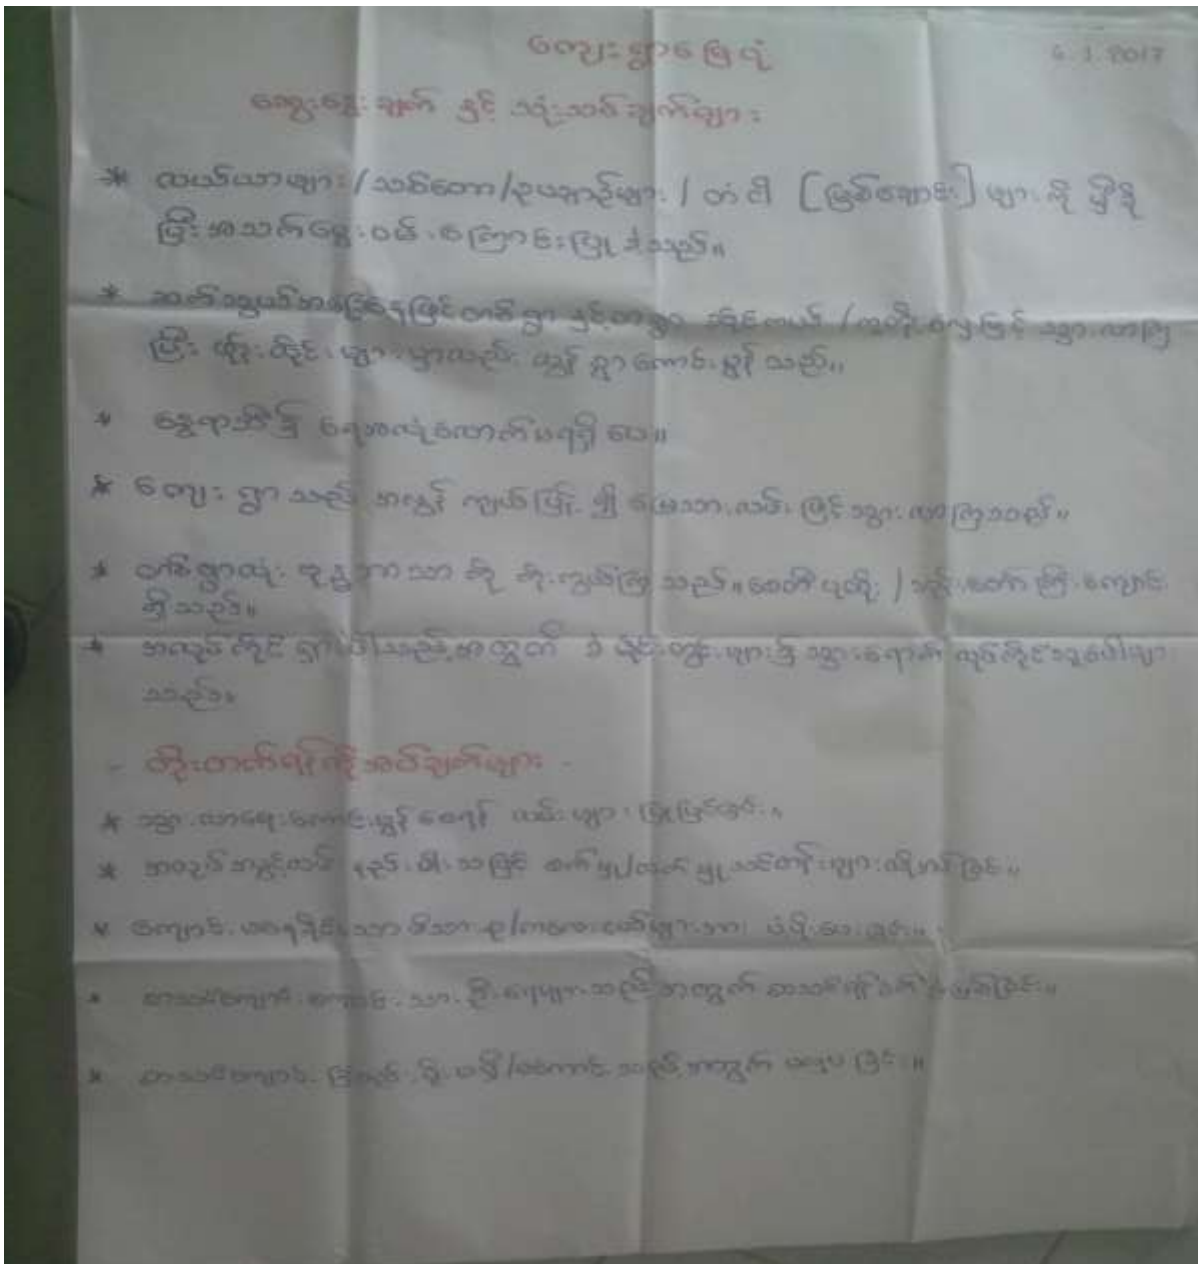 ကျေးရွာမြေပုံ
6.1.2017
ဆွေးနွေးချက် နှင့် သုံးသပ်ချက်များ
* လယ်ယာများ/သစ်တော/ဥယျာဉ်များ / တံငါ [မြစ်ချောင်း] များ ကို မှီခို
ပြီး အသက်မွေးဝမ်းကြောင်းပြု ကြသည်။
* ဆက်သွယ် တစ်ရွာ နှင့်တစ်ရွာ ဆိုင်ကယ် / လှေဖြင့် သွားလာကြ
ပြီး ဖုန်းလိုင်းများမှာလည်း ကောင်းမွန် သည်။
* နွေရာသီ၌ ရေအလုံလောက်မရရှိ ပေ။
* ကျေးရွာသည် အလွန် ကျယ်ပြန့် ၍ မြေသားလမ်း ဖြင့်သွားလာကြသည်။
* တစ်ရွာလုံး ဗုဒ္ဓဘာသာ ကို ကိုးကွယ်ကြ သည်။ စေတီပုထိုး / ဘုန်းတော်ကြီးကျောင်း
ရှိသည်။
* အလုပ်ကိုင် ရှားပါးသည့်အတွက် သွားရောက် လုပ်ကိုင်သူပေါများ
သည်။
- တိုးတက်ရန်လိုအပ်ချက်များ -
* သွားလာရေးကောင်းမွန်စေရန် လမ်းများ ပြုပြင်ခြင်း။
* အလုပ်အကိုင် နည်းပါးသဖြင့် စက်မှု/လက်မှု သင်တန်းများလိုအပ်ခြင်း။
* ကျောင်း မနေနိုင်သော မိသားစု/ကလေးငယ်များအား ပံ့ပိုးပေးခြင်း။
* စာသင်ကျောင်း ကျောင်းသားဦးရေများသည့်အတွက် စာသင်ရန် ခက်ခဲခြင်း။
* စာသင်ကျောင်း မရှိ/မကောင်းသည့်အတွက်